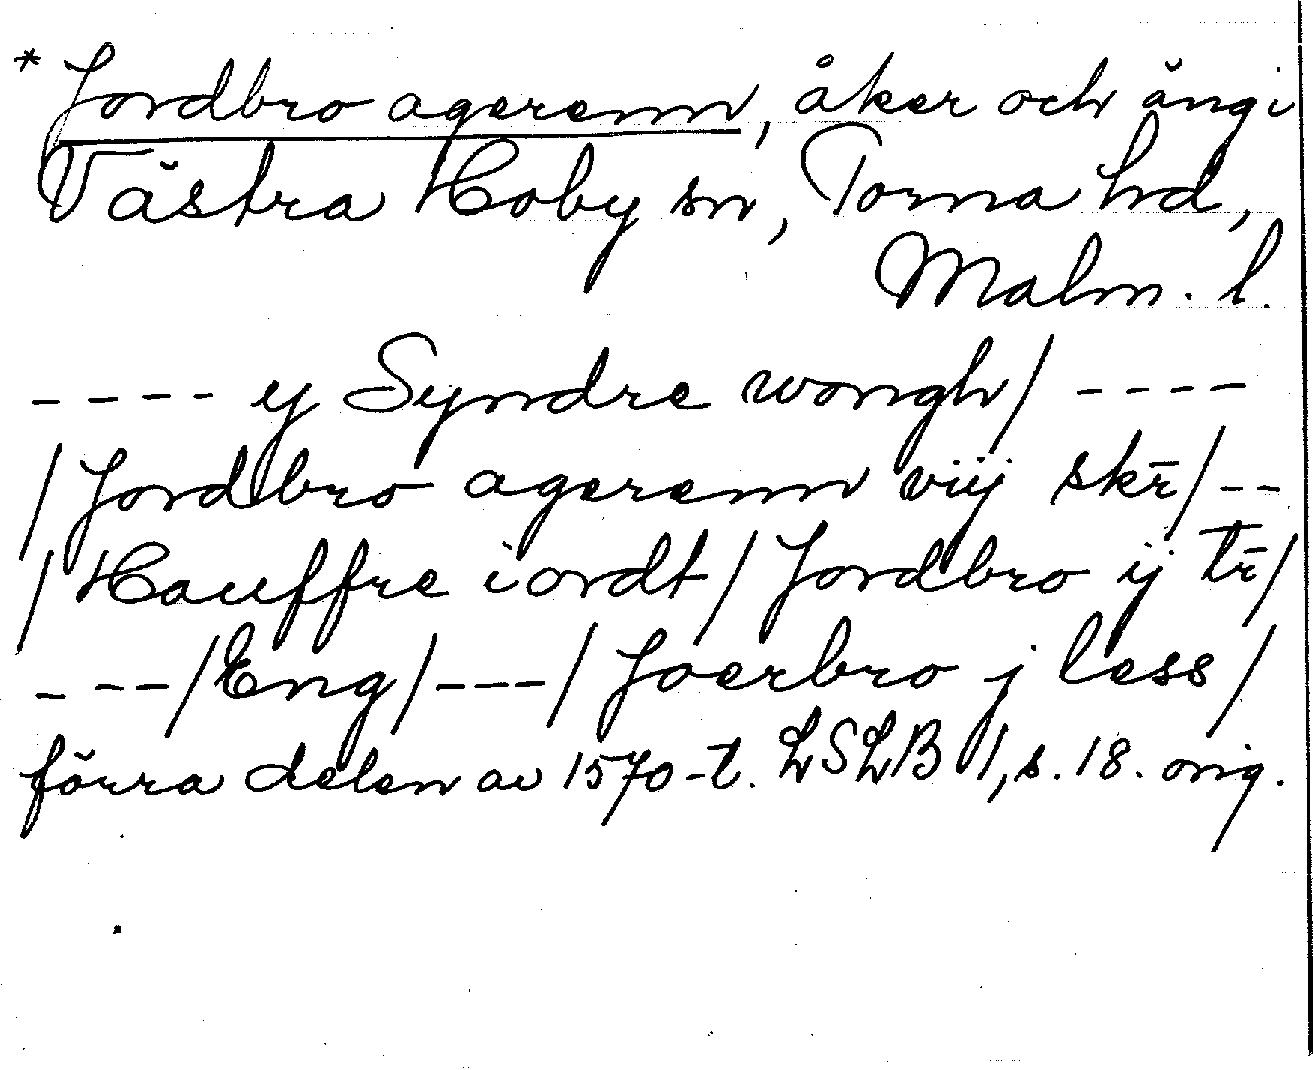 * Jordbro agerenn, åker och äng i
Västra Hoby sn, Torna hd,
Malm. l.
---- ij Syndre wongh/ ----
/Jordbro agerenn viij skr̄/--
/Hauffre iordt/Jordbro ij tr̄/
---/Eng/---/Joerbro j less/
förra delen av 1570-t. LSLB 1, s. 18. orig.